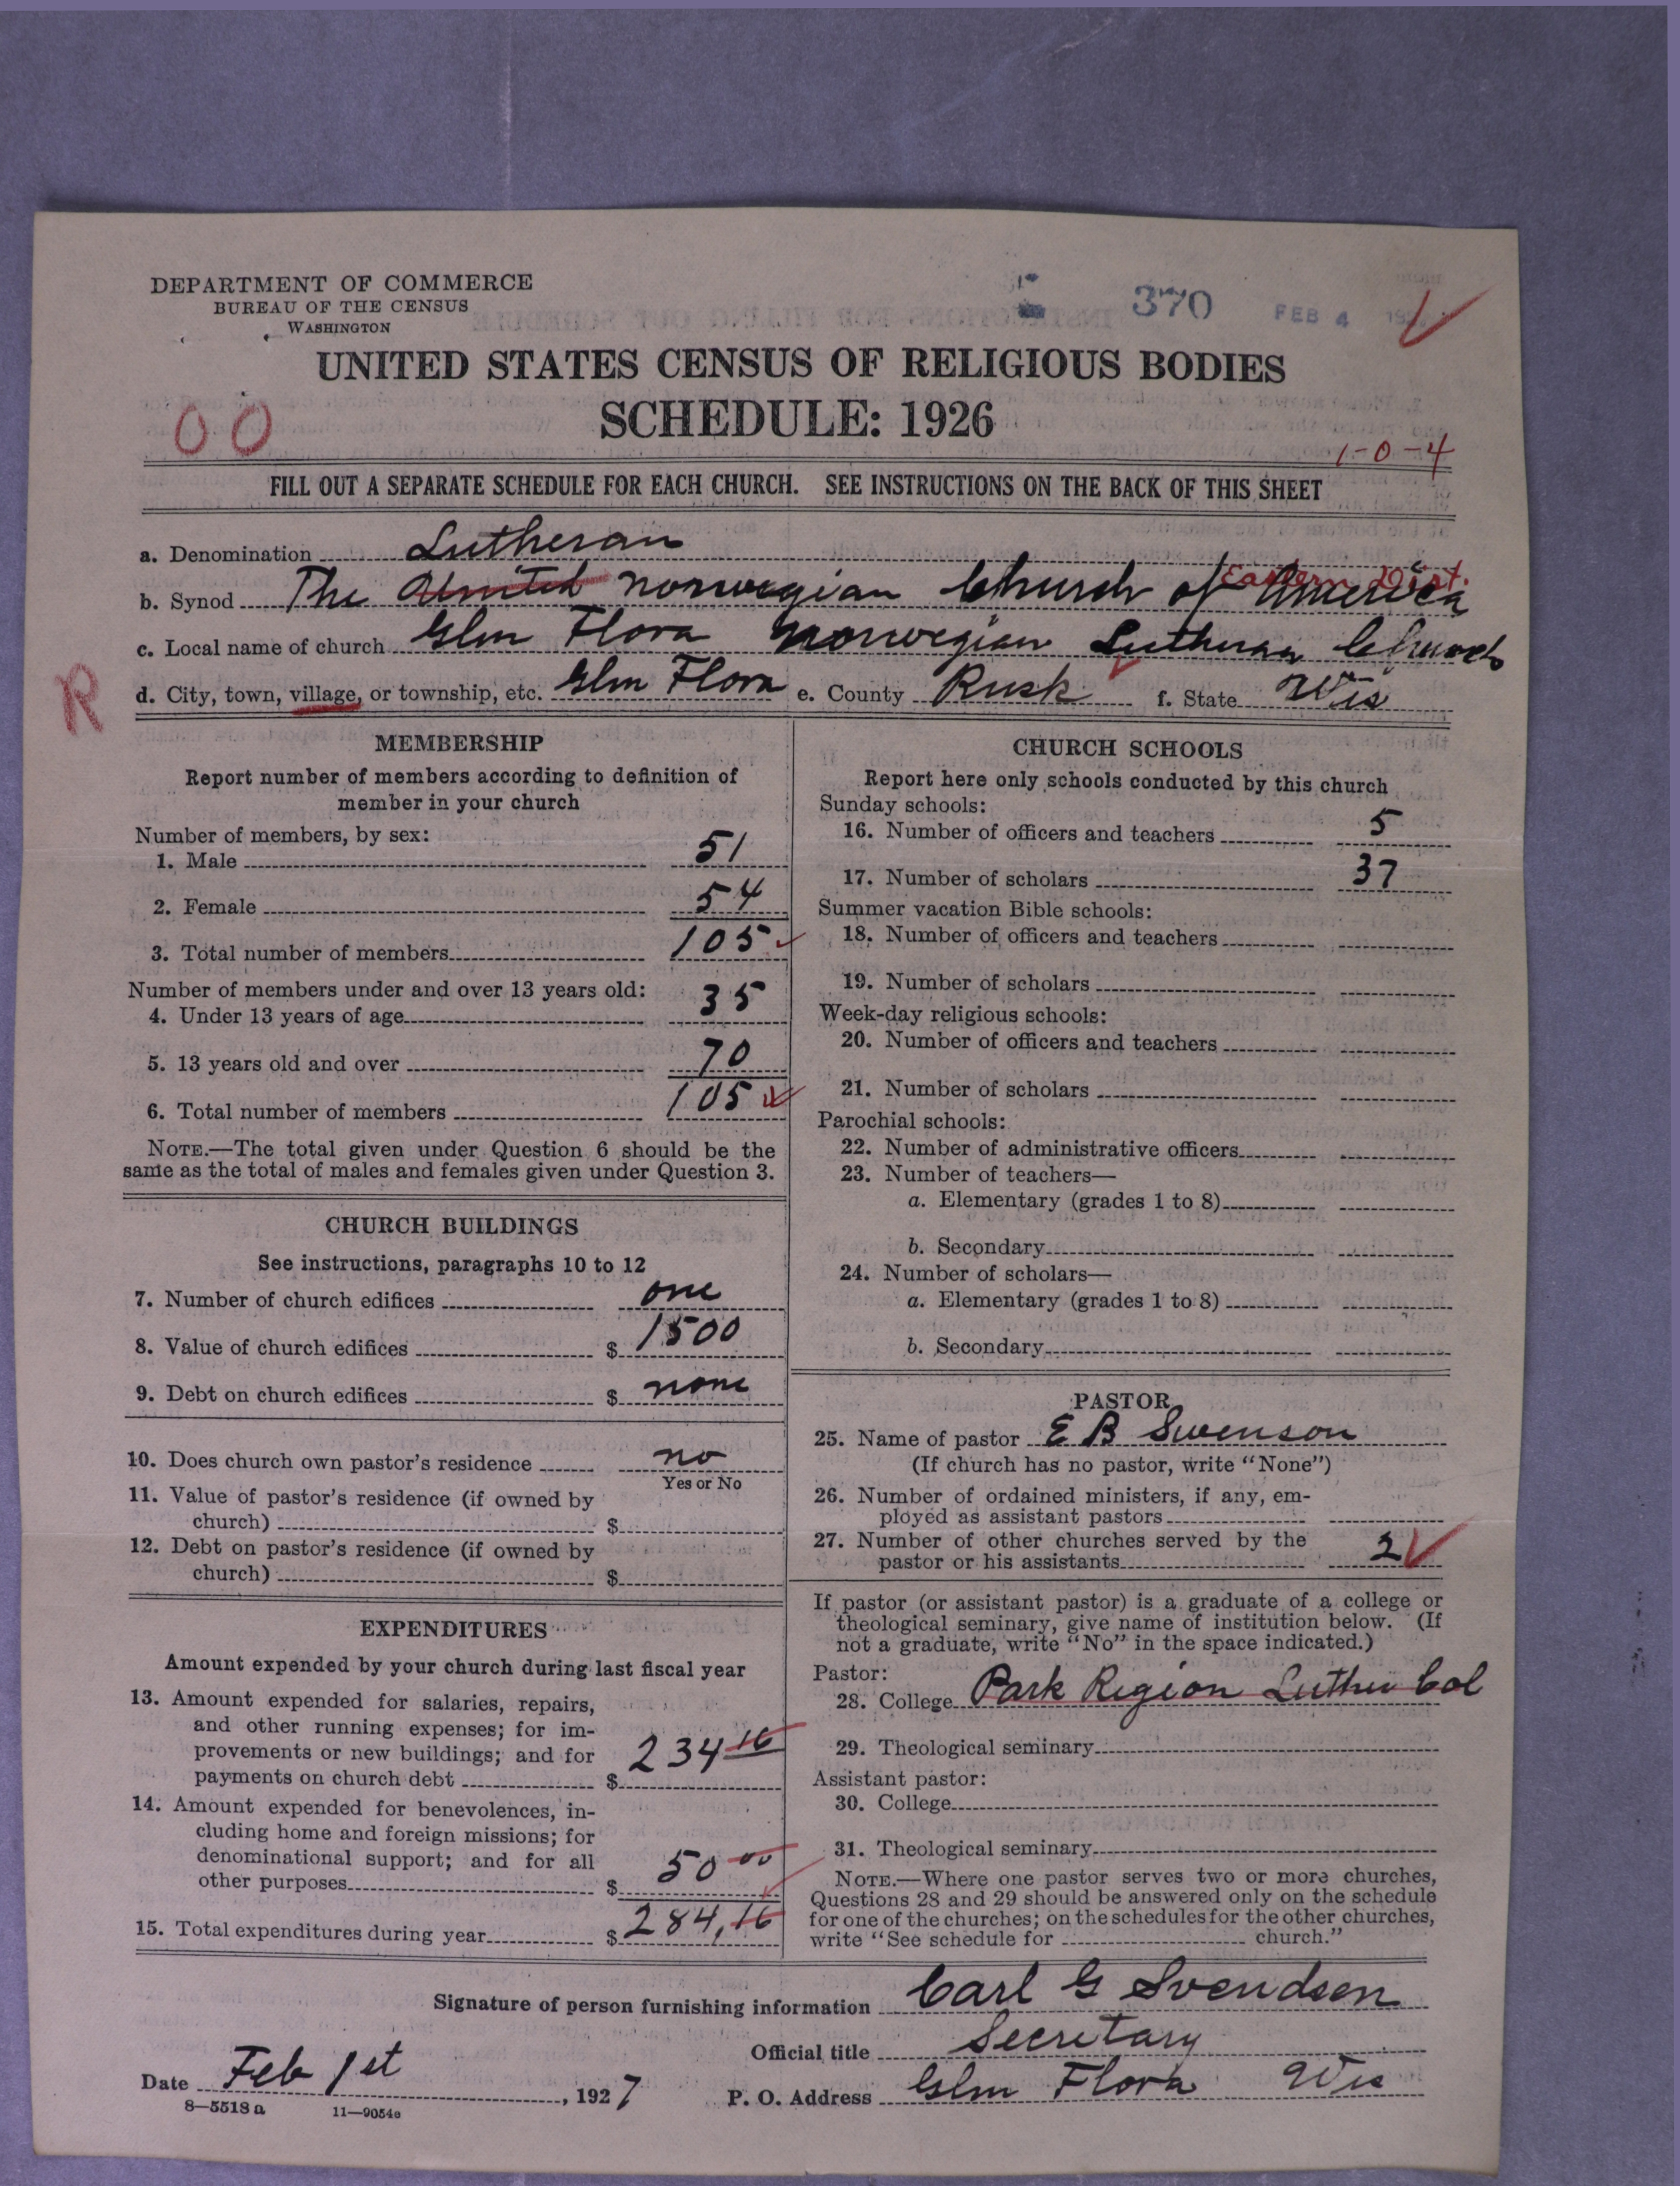 DEPARTMENT OF COMMERCE
BUREAU OF THE CENSUS
WASHINGTON
370 FEB 4
UNITED STATES CENSUS OF RELIGIOUS BODIES
SCHEDULE: 1926
00
1-0-4
FILL OUT A SEPARATE SCHEDULE FOR EACH CHURCH. SEE INSTRUCTIONS ON THE BACK OF THIS SHEET
a. Denomination Lutheran
Eastern Dist.
b. Synod The United Norwegian Church of America
c. Local name of church Glen Flora Norwegian Lutheran Church
R
d. City, town, village, or township, etc. Glen Flora e. County Rusk f. State Wis
MEMBERSHIP
Report number of members according to definition of
member in your church
Number of members, by sex:
1. Male 51
2. Female 54
3. Total number of members 105
Number of members under and over 13 years old:
4. Under 13 years of age 35
5. 13 years old and over 70
6. Total number of members 105
NOTE.—The total given under Question 6 should be the
same as the total of males and females given under Question 3.
CHURCH BUILDINGS
See instructions, paragraphs 10 to 12
7. Number of church edifices one
8. Value of church edifices $ 1500
9. Debt on church edifices $ none
10. Does church own pastor's residence no
Yes or No
11. Value of pastor's residence (if owned by
church) $
12. Debt on pastor's residence (if owned by
church) $
EXPENDITURES
Amount expended by your church during last fiscal year
13. Amount expended for salaries, repairs,
and other running expenses; for im-
provements or new buildings; and for
payments on church debt $ 234 16
14. Amount expended for benevolences, in-
cluding home and foreign missions; for
denominational support; and for all
other purposes $ 50 00
15. Total expenditures during year $ 284,16
CHURCH SCHOOLS
Report here only schools conducted by this church
Sunday schools:
16. Number of officers and teachers 5
17. Number of scholars 37
Summer vacation Bible schools:
18. Number of officers and teachers
19. Number of scholars
Week-day religious schools:
20. Number of officers and teachers
21. Number of scholars
Parochial schools:
22. Number of administrative officers
23. Number of teachers—
a. Elementary (grades 1 to 8)
b. Secondary
24. Number of scholars—
a. Elementary (grades 1 to 8)
b. Secondary
PASTOR
25. Name of pastor E B Swenson
(If church has no pastor, write "None")
26. Number of ordained ministers, if any, em-
ployed as assistant pastors
27. Number of other churches served by the
pastor or his assistants 2
If pastor (or assistant pastor) is a graduate of a college or
theological seminary, give name of institution below. (If
not a graduate, write "No" in the space indicated.)
Pastor:
28. College Park Region Luther Col
29. Theological seminary
Assistant pastor:
30. College
31. Theological seminary
NOTE.—Where one pastor serves two or more churches,
Questions 28 and 29 should be answered only on the schedule
for one of the churches; on the schedules for the other churches,
write "See schedule for church."
Signature of person furnishing information Carl G Svendsen
Official title Secretary
Date Feb 1st, 1927
P. O. Address Glen Flora Wis
8—5518 a 11—9054c